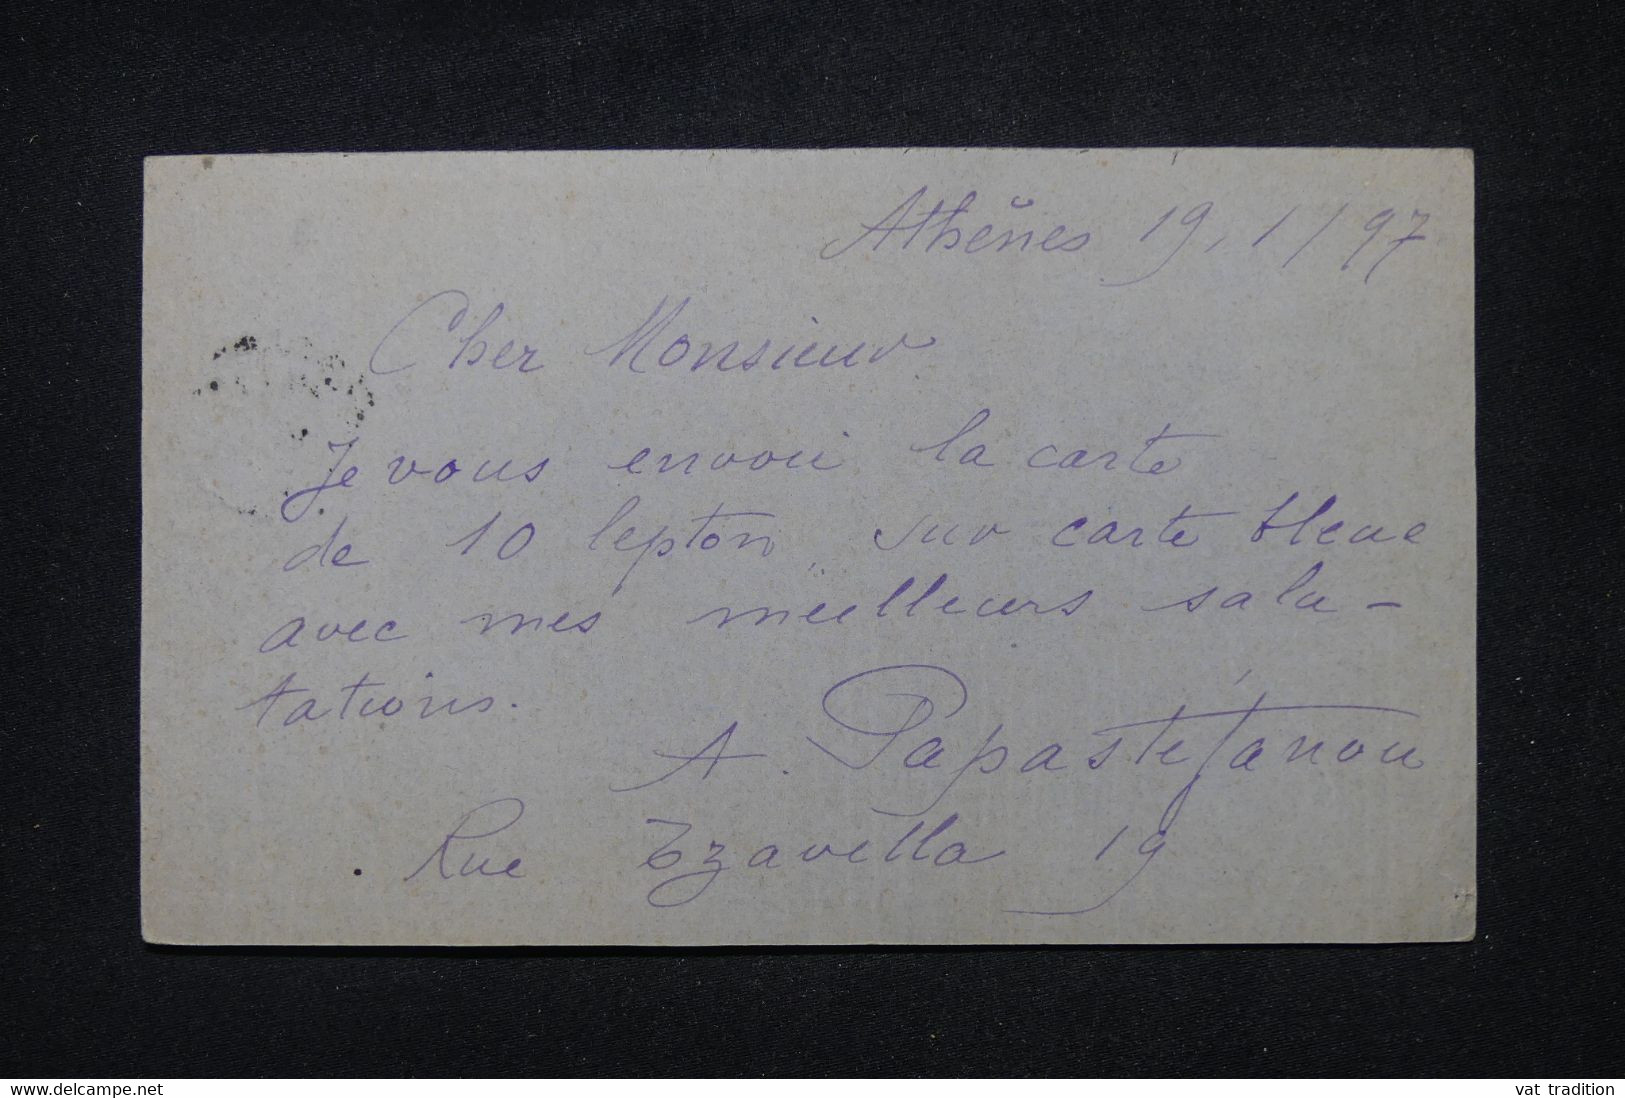 Athènes 19, 1/97
Cher Monsieur
Je vous envoii la carte
de 10 lepton, sur carte bleue
avec mes meilleurs salu-
tations.
A. Papastéfanou
Rue Tzavella 19
www.delcampe.net
vat tradition